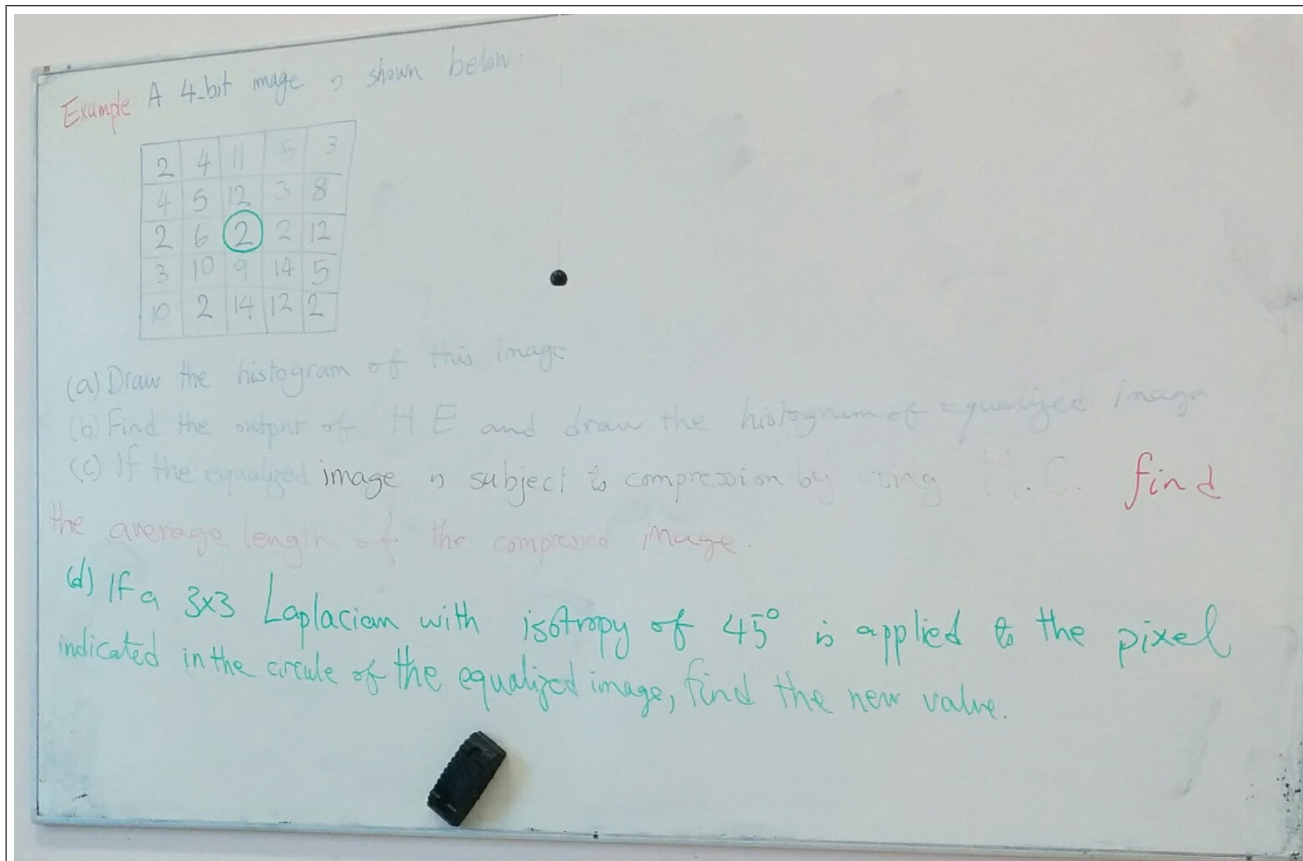 Example: A 4-bit image is shown below:
2 4 11 5 3
4 5 12 3 8
2 6 2 2 12
3 10 9 14 5
10 2 14 12 2
(a) Draw the histogram of this image
(b) Find the output of H E and draw the histogram of equalized image
(c) If the equalized image is subject to compression by using H.C. find
the average length of the compressed image.
(d) If a 3x3 Laplacian with isotropy of 45° is applied to the pixel
indicated in the circule of the equalized image, find the new value.